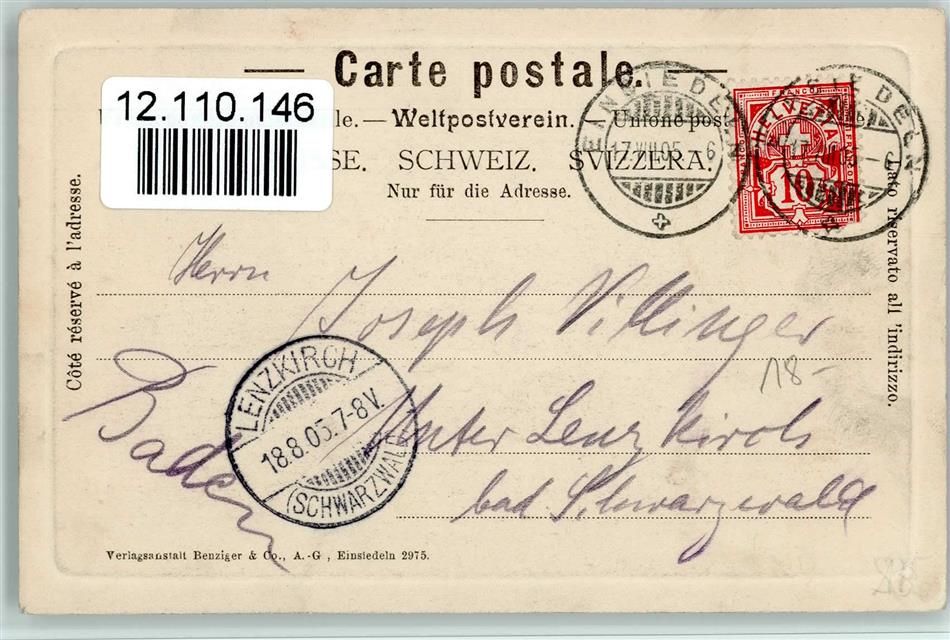 Carte postale.
12.110.146
le. — Weltpostverein. — Unione post
SE. SCHWEIZ. SVIZZERA.
Nur für die Adresse.
EINSIEDELN
17.VIII.05.-6
HELVETIA
FRANCO
10
Côté réservé à l'adresse.
Lato riservato all 'indirizzo.
Herrn
Joseph Villinger
18-
LENZKIRCH
18.8.05.7-8V.
(SCHWARZWALD)
Unter Lenzkirch
bad Schwarzwald
Baden
Verlagsanstalt Benziger & Co., A.-G , Einsiedeln 2975.